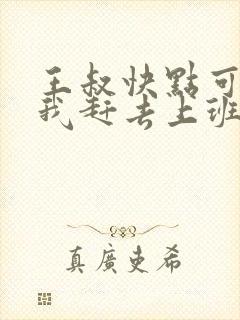 王叔快點可
我赶去上班
真廣吏希